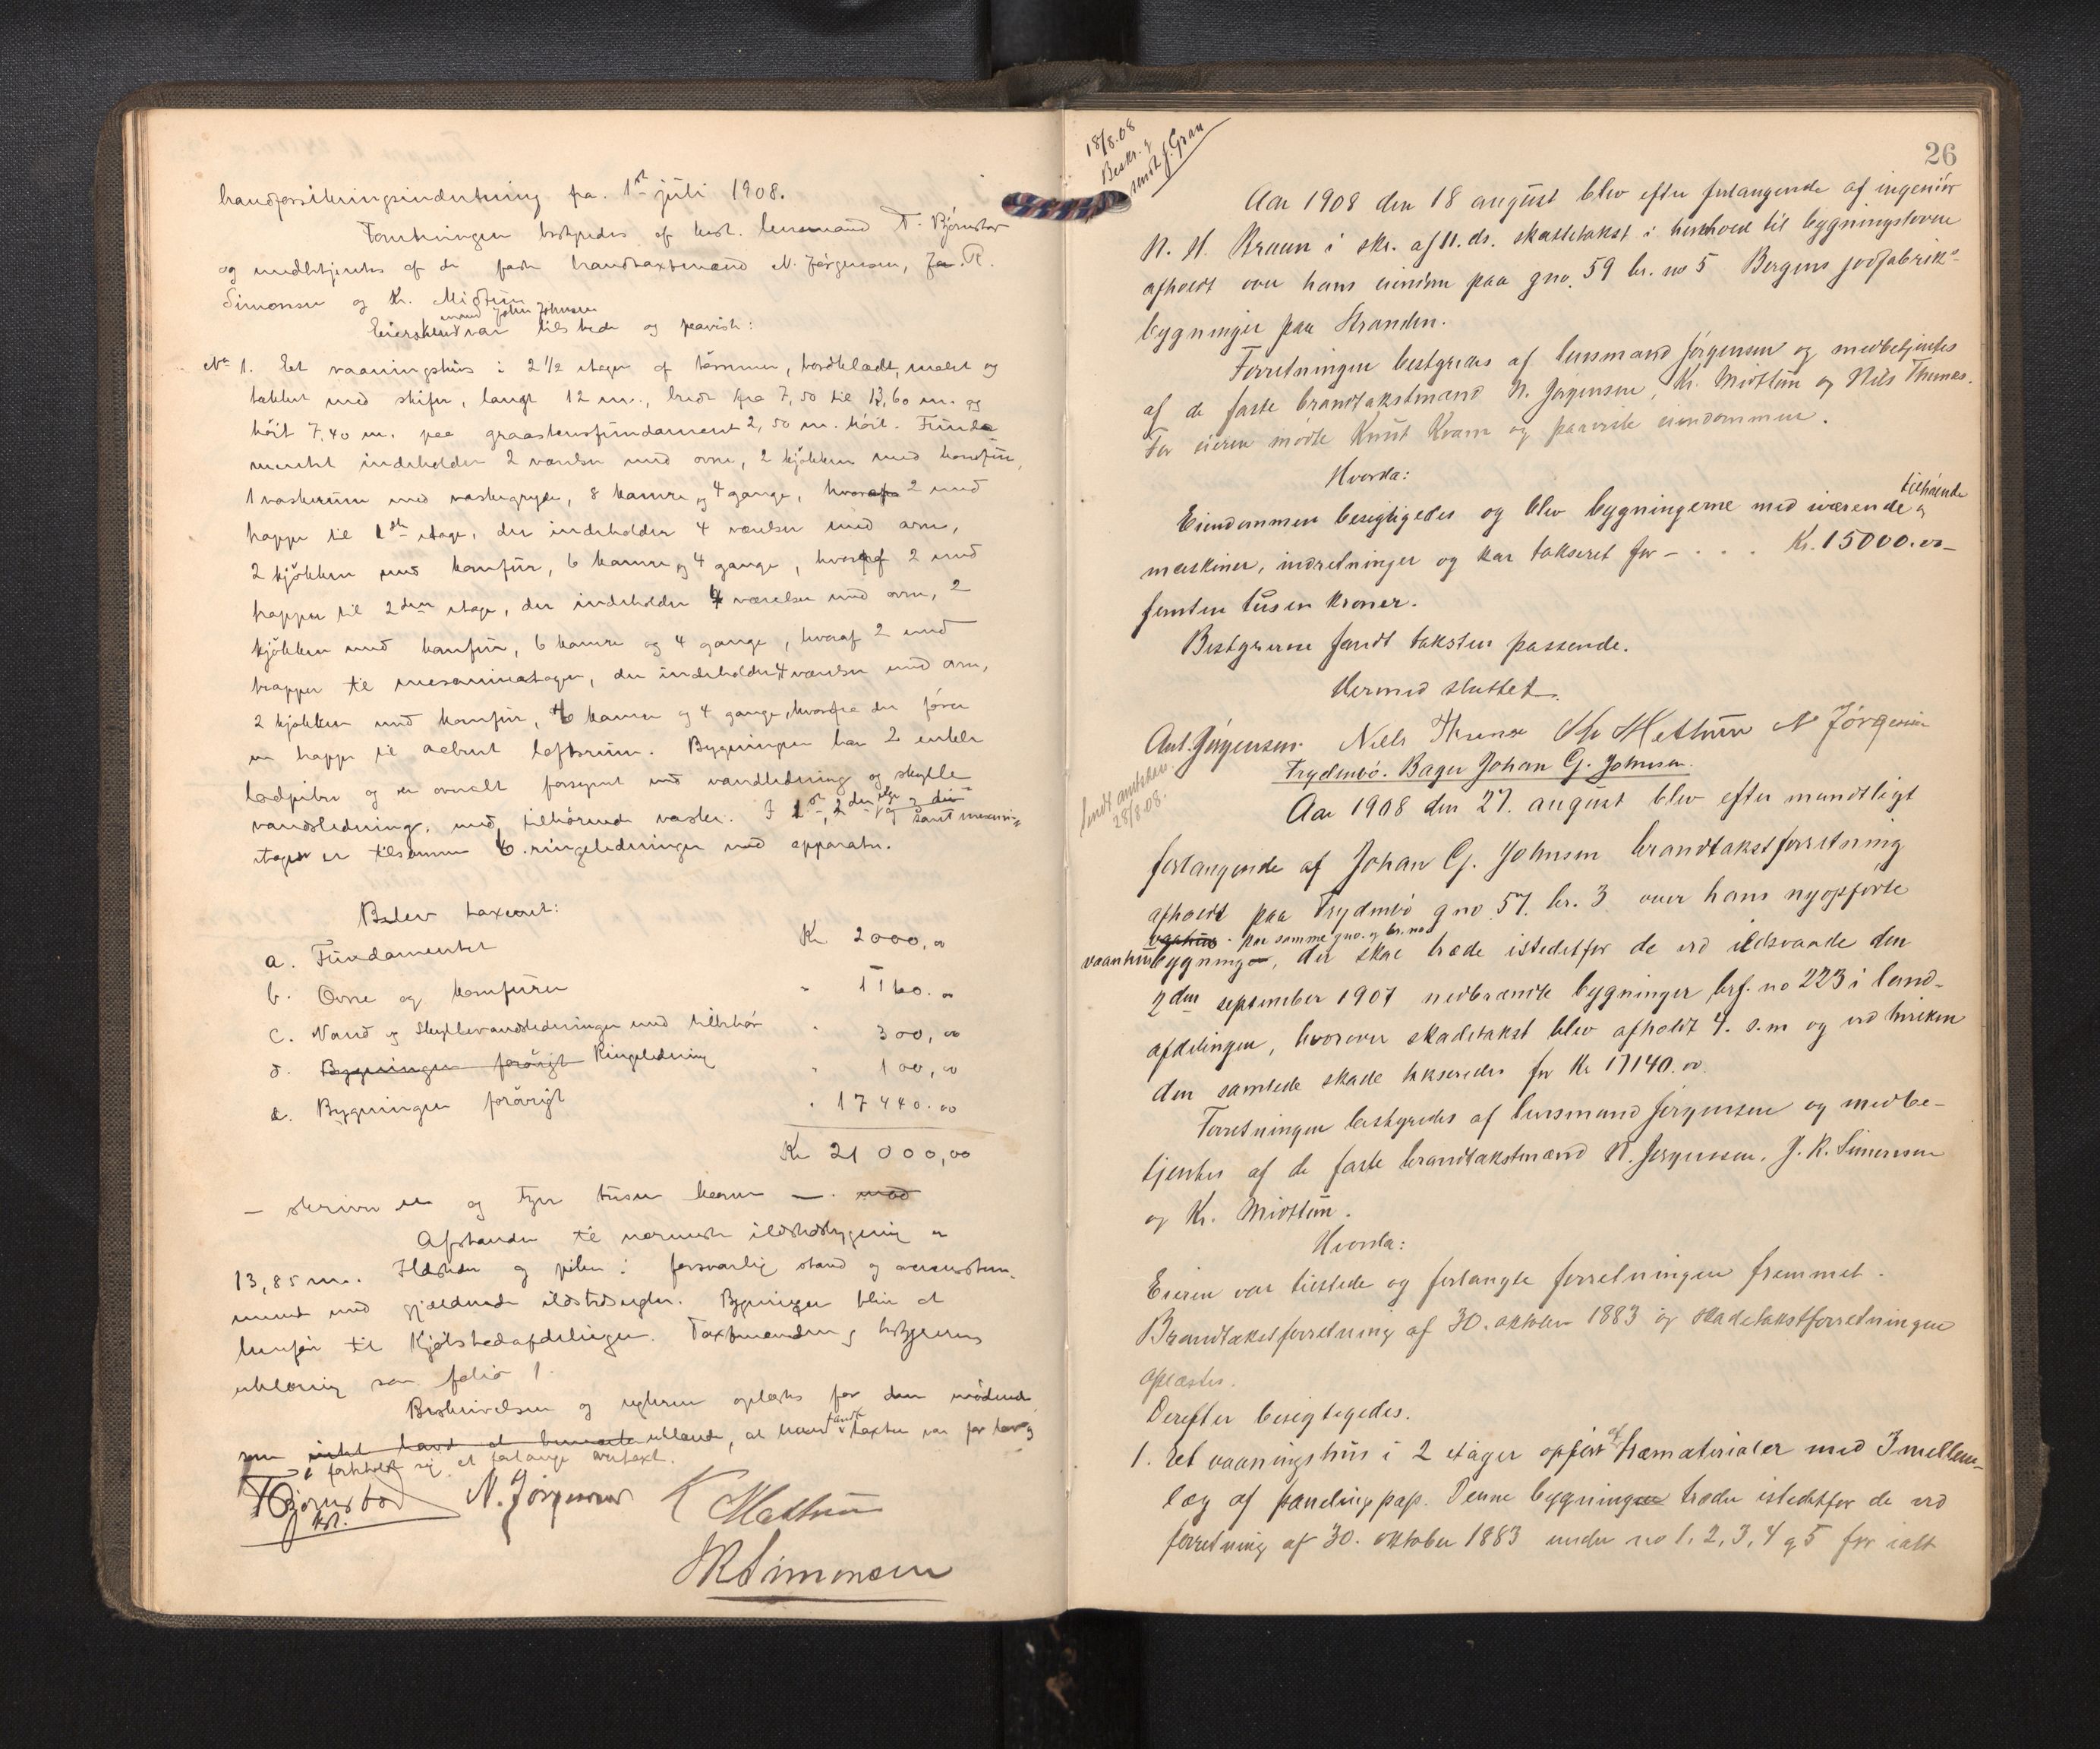 brandforsikringsindretning fra 1ste juli 1908.
Forretningen bestyredes af kst. lensmand T. Bjørnstad
og medbetjentes af de faste brandtaxtmænd N. Jørgensen, J. R.
Simonsen og Kr. Midttun
mand John Johnsen
Eierskens var tilstede og paaviste:
No 1. Et vaaningshus i 2 1/2 etager af tømmer, bordklædt, malet og
tækket med skifer, langt 12 m., bredt fra 7,50 til 13,60 m. og
høit 7,40 m. paa graastensfundament 2,50 m. høit. Funda
mentet indeholder 2 værelser med ovne, 2 kjøkken med komfur,
1 vaskerum med vaskegryde, 8 kamre og 4 gange, hvoraf 2 med
trappe til 1ste etage, der indeholder 4 værelser med ovne,
2 kjøkken med komfur, 6 kamre og 4 gange, hvoraf 2 med
trapper til 2den etage, der indeholder 4 værelser med ovne, 2
kjøkken med komfur, 6 kamre og 4 gange, hvoraf 2 med
trapper til mesaninetagen, der indeholder 4 værelser med ovn,
2 kjøkken med komfur, 6 kamre og 4 gange, hvorfra der fører
en trappe til aabent loftsrum. Bygningen har 2 enkle
lædpiber og er overalt forsynet med vandledning og skylle
vandsledning, med tilhørende vasker. I 1ste, 2den etage og samt mesanin-
etagen er tilsammen 6 ringeledninger med apparater.
Blev taxeret:
a. Fundamentet Kr 2000,00
b. Ovne og komfurer " 1160.00
c. Vand og Skyllevandsledninger med tilbehør " 300,00
d. Bygningen forøvrigt Ringeledning " 100,00
e. Bygningen forøvrigt " 17440.00
Kr 21000,00
— skriver en og tyve tusen kroner —. mod
Afstanden til nærmeste ildstedsbygning er
13,85 m. Ildsteder og piber i forsvarlig stand og overensstem-
mende med gjældende ildstedsregler. Bygningen blir at
henføre til Kjøbstedafdelingen. Taxtmændenes og bestyrerens
erklæring som folio 1.
Beskrivelsen og reglerne oplæstes for den mødende
som intet havde at bemærke erklærede, at han fandt taxten var for lav og
forbeholdt sig at forlange overtaxt.
T Bjørnstad
kst.
N. Jørgensen K Mettun
JRSimonsen
18/8.08
Beskr. g
sendt J. Gran
26
Aar 1908 den 18 august blev efter forlangende af ingeniør
N. H. Bruun i skr. af 11. ds. skattetakst i henhold til bygningsloven
afholdt over hans eiendom paa gno. 59 br. no 5 Bergens jodfabriks-
bygninger paa Stranden.
Forretningen bestyredes af lensmand Jørgensen og medbetjentes
af de faste brandtakstmænd N. Jørgensen, Kr. Midttun og Nils Thunes.
For eieren mødte Knut Kvam og paaviste eiendommen.
Hvorda:
tilhørende
Eiendommen besigtigedes og blev bygningerne med iværende og
maskiner, indretninger og kar takseret for - . . . Kr. 15000.00—
femten tusen kroner.
Bestyreren fandt taksten passende.
Hermed sluttet.
Ant. Jørgensen. Nills Thunes Kr Mettun N Jørgensen
Frydenbø. Bager Johan G. Johnsen.
Sendt amtskass.
28/8.08.
Aar 1908 den 27. august blev efter mundtligt
forlangende af Johan G. Johnsen brandtakstforretning
afholdt paa Frydenbø gno 57. br. 3 over hans nyopførte
vaahus. paa samme gno. og br. no
vaanhusbygninge, der skal træde istedetfor de ved ildsvaade den
2den september 1907 nedbrændte bygninger brf. no 223 i land-
afdelingen, hvorover skadetakst blev afholdt 4. s.m og ved hvilken
den samlede skade takseredes for Kr 17140.00.
Forretningen bestyredes af lensmand Jørgensen og medbe-
tjentes af de faste brandtakstmænd N. Jørgensen, J. R. Simonsen
og Kr. Midttun.
Hvorda:
Eieren var tilstede og forlangte forretningen fremmet.
Brandtakstforretning af 30. oktober 1883 og skadetakstforretningen
oplæstes.
Derefter besigtigedes.
1. Et vaaningshus i 2 etager opført af træmaterialer med Imellem-
læg af panelingpap. Denne bygning træder istedetfor de ved
forretning af 30. oktober 1883 under no 1, 2, 3, 4 og 5 for ialt